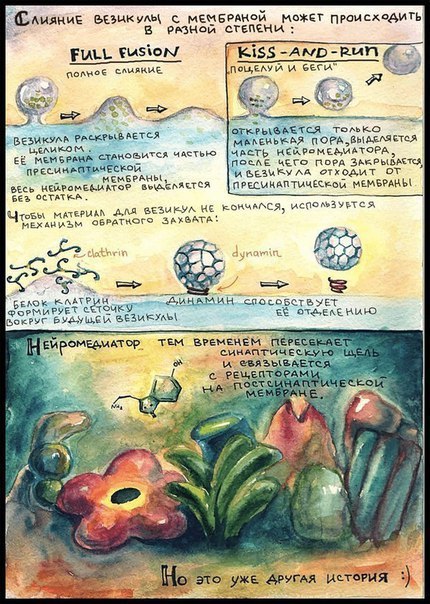 Слияние везикулы с мембраной может происходить
в разной степени:
FULL FUSION
полное слияние
Везикула раскрывается
целиком.
Её мембрана становится частью
пресинаптической
мембраны,
весь нейромедиатор выделяется
без остатка.
KISS-AND-RUN
"поцелуй и беги"
открывается только
маленькая пора, выделяется
часть нейромедиатора,
после чего пора закрывается,
и везикула отходит от
пресинаптической мембраны.
Чтобы материал для везикул не кончался, используется
механизм обратного захвата:
clathrin
dynamin
Белок клатрин
формирует сеточку
вокруг будущей везикулы
Динамин способствует
её отделению
Нейромедиатор тем временем пересекает
синаптическую щель
и связывается
с рецепторами
на постсинаптической
мембране.
OH
NH₂
Но это уже другая история :)